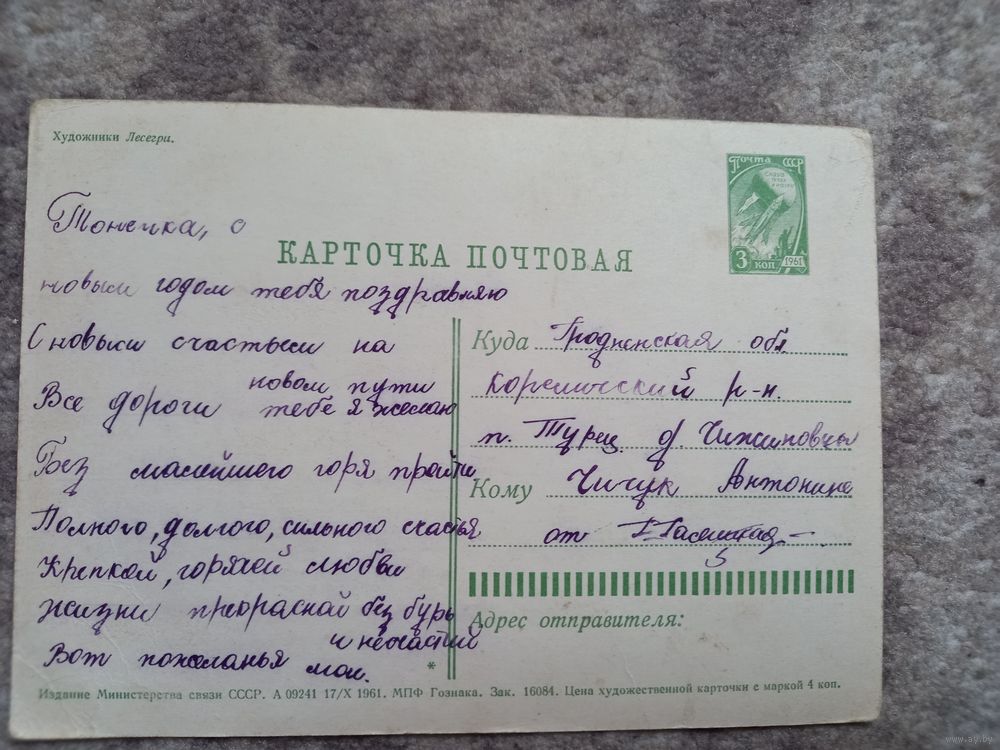 Художники Лесегри.
Почта СССР
3 коп 1961
КАРТОЧКА ПОЧТОВАЯ
Тонечка, с
новым годом тебя поздравляю
С новым счастьем на
новом пути
Все дороги тебе я желаю
Без малейшего горя пройти
Полного, долгого, сильного счастья
Крепкой, горячей любви
жизни прекрасной без бурь
и ненастий
Вот пожеланья мои.
Куда Гродненская обл
Кореличский р-н.
п. Турец д Чижиновцы
Кому Чичук Антонине
от
Адрес отправителя:
*
Издание Министерства связи СССР. А 09241 17/X 1961. МПФ Гознака. Зак. 16084. Цена художественной карточки с маркой 4 коп.
www.ay.by